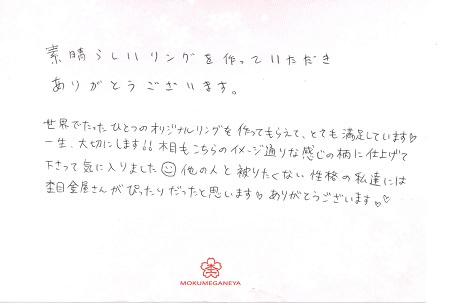 素晴らしいリングを作っていただき
ありがとうございます。
世界でたったひとつのオリジナルリングを作ってもらえて、とても満足しています♡
一生、大切にします!! 木目もこちらのイメージ通りな感じの柄に仕上げて
下さって気に入りました☺ 他の人と被りたくない性格の私達には
杢目金屋さんがぴったりだったと思います♡ ありがとうございます。♡♡
MOKUMEGANEYA